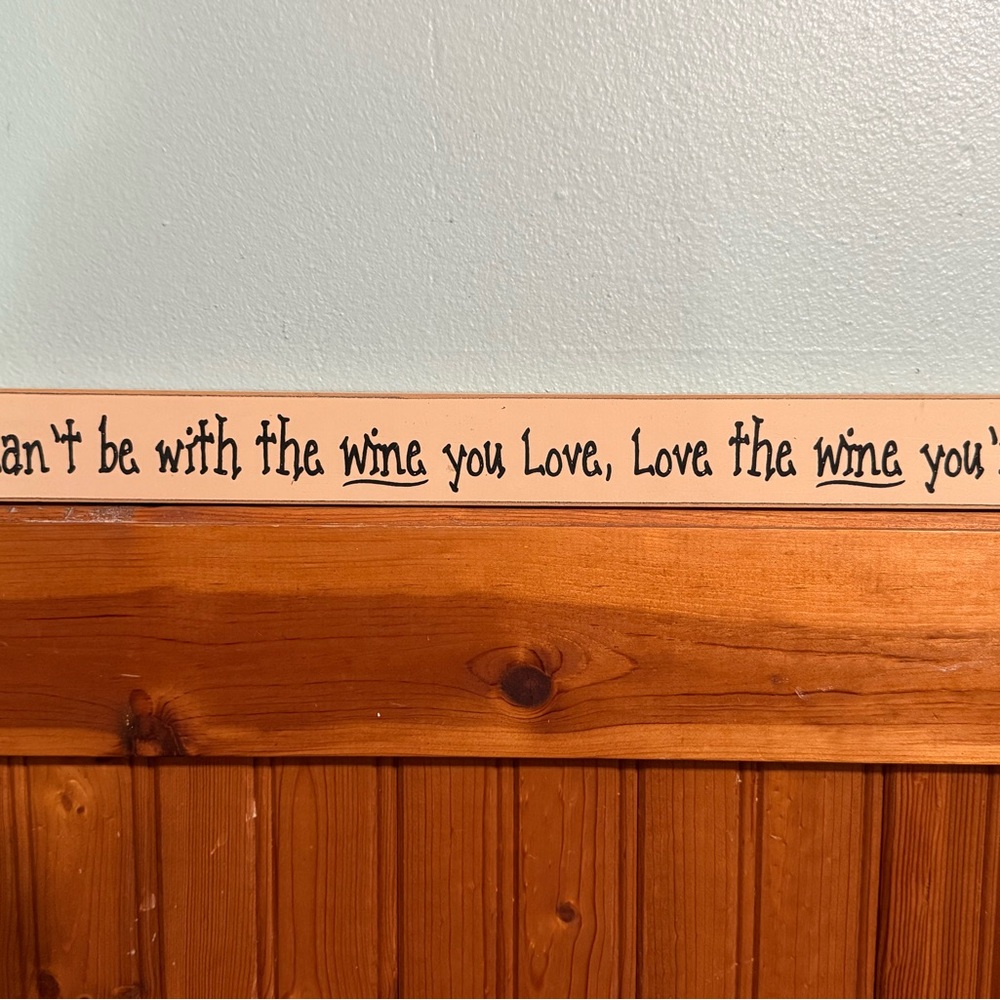 an't be with the wine you Love, Love the wine you'